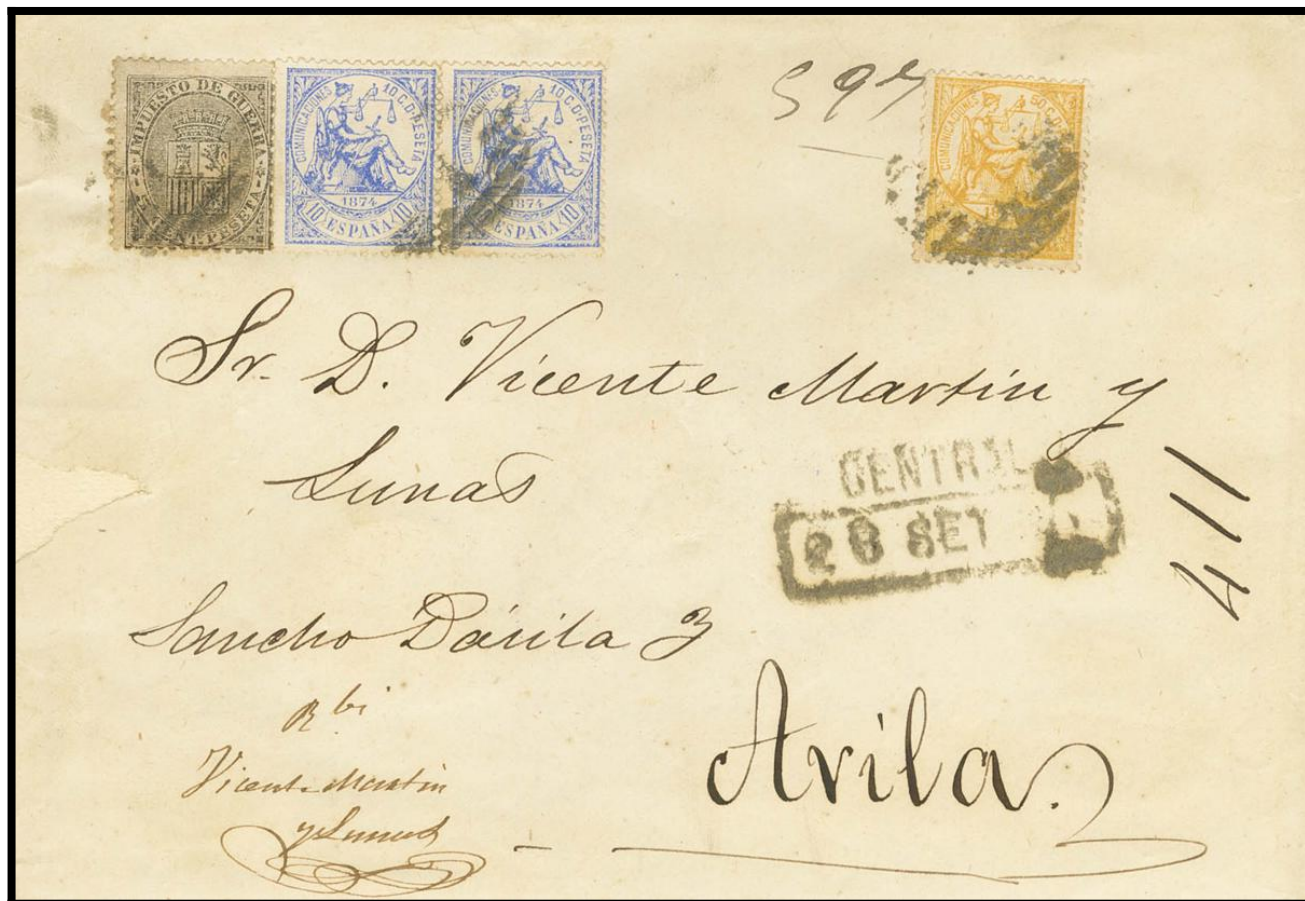 IMPUESTO DE GUERRA
5 CENT. PESETA
COMUNICACIONES 10 C. D PESETA
1874
10 ESPAÑA 10
COMUNICACIONES 10 C. D PESETA
1874
10 ESPAÑA 10
597
COMUNICACIONES 50
Sr. D. Vicente Martin y
Lunas
CENTRAL
28 SET
411
Sancho Dávila 3
Rbi
Vicente Martin
y Lunas
Avila.